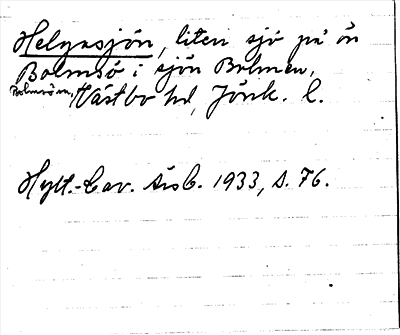 Helgasjön, liten sjö på ön
Bolmsö i sjön Bolmen,
Bolmsö sn, Västbo hd, Jönk. l.
Hylt.-Cav. Årsb. 1933, s. 76.